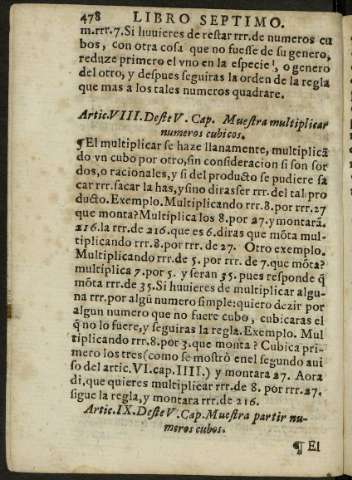 478 LIBRO SEPTIMO.
m.rrr.7. Si huuieres de restar rrr. de numeros cu
bos, con otra cosa que no fuesse de su genero,
reduze primero el vno en la especie, o genero
del otro, y despues seguiras la orden de la regla
que mas a los tales numeros quadrare.
Artic.VIII. Deste V. Cap. Muestra multiplicar
numeros cubicos.
¶El multiplicar se haze llanamente, multiplicã
do vn cubo por otro, sin consideracion si son sor
dos, o racionales, y si del producto se pudiere sa
car rrr. sacar la has, y sino diras ser rrr. del tal pro
ducto. Exemplo. Multiplicando rrr.8. por rrr.27
que monta? Multiplica los 8. por 27. y montarà.
216. la rrr. de 216. que es 6. diras que mõta mul-
tiplicando rrr.8. por rrr. de 27. Otro exemplo.
Multiplicando rrr. de 5. por rrr. de 7. que mõta?
multiplica 7. por 5. y seran 35. pues responde q̃
mõta rrr. de 35. Si huuieres de multiplicar algu-
na rrr. por algũ numero simple: quiero dezir por
algun numero que no fuere cubo, cubicaras el
q̃ no lo fuere, y seguiras la regla. Exemplo. Mul
tiplicando rrr.8. por 3. que monta? Cubica pri-
mero los tres (como se mostrò en el segundo aui
so del artic.VI. cap.IIII.) y montara 27. Aora
di, que quieres multiplicar rrr. de 8. por rrr.27.
sigue la regla, y montara rrr. de 216.
Artic.IX. Deste V. Cap. Muestra partir nu-
meros cubos.
¶ El